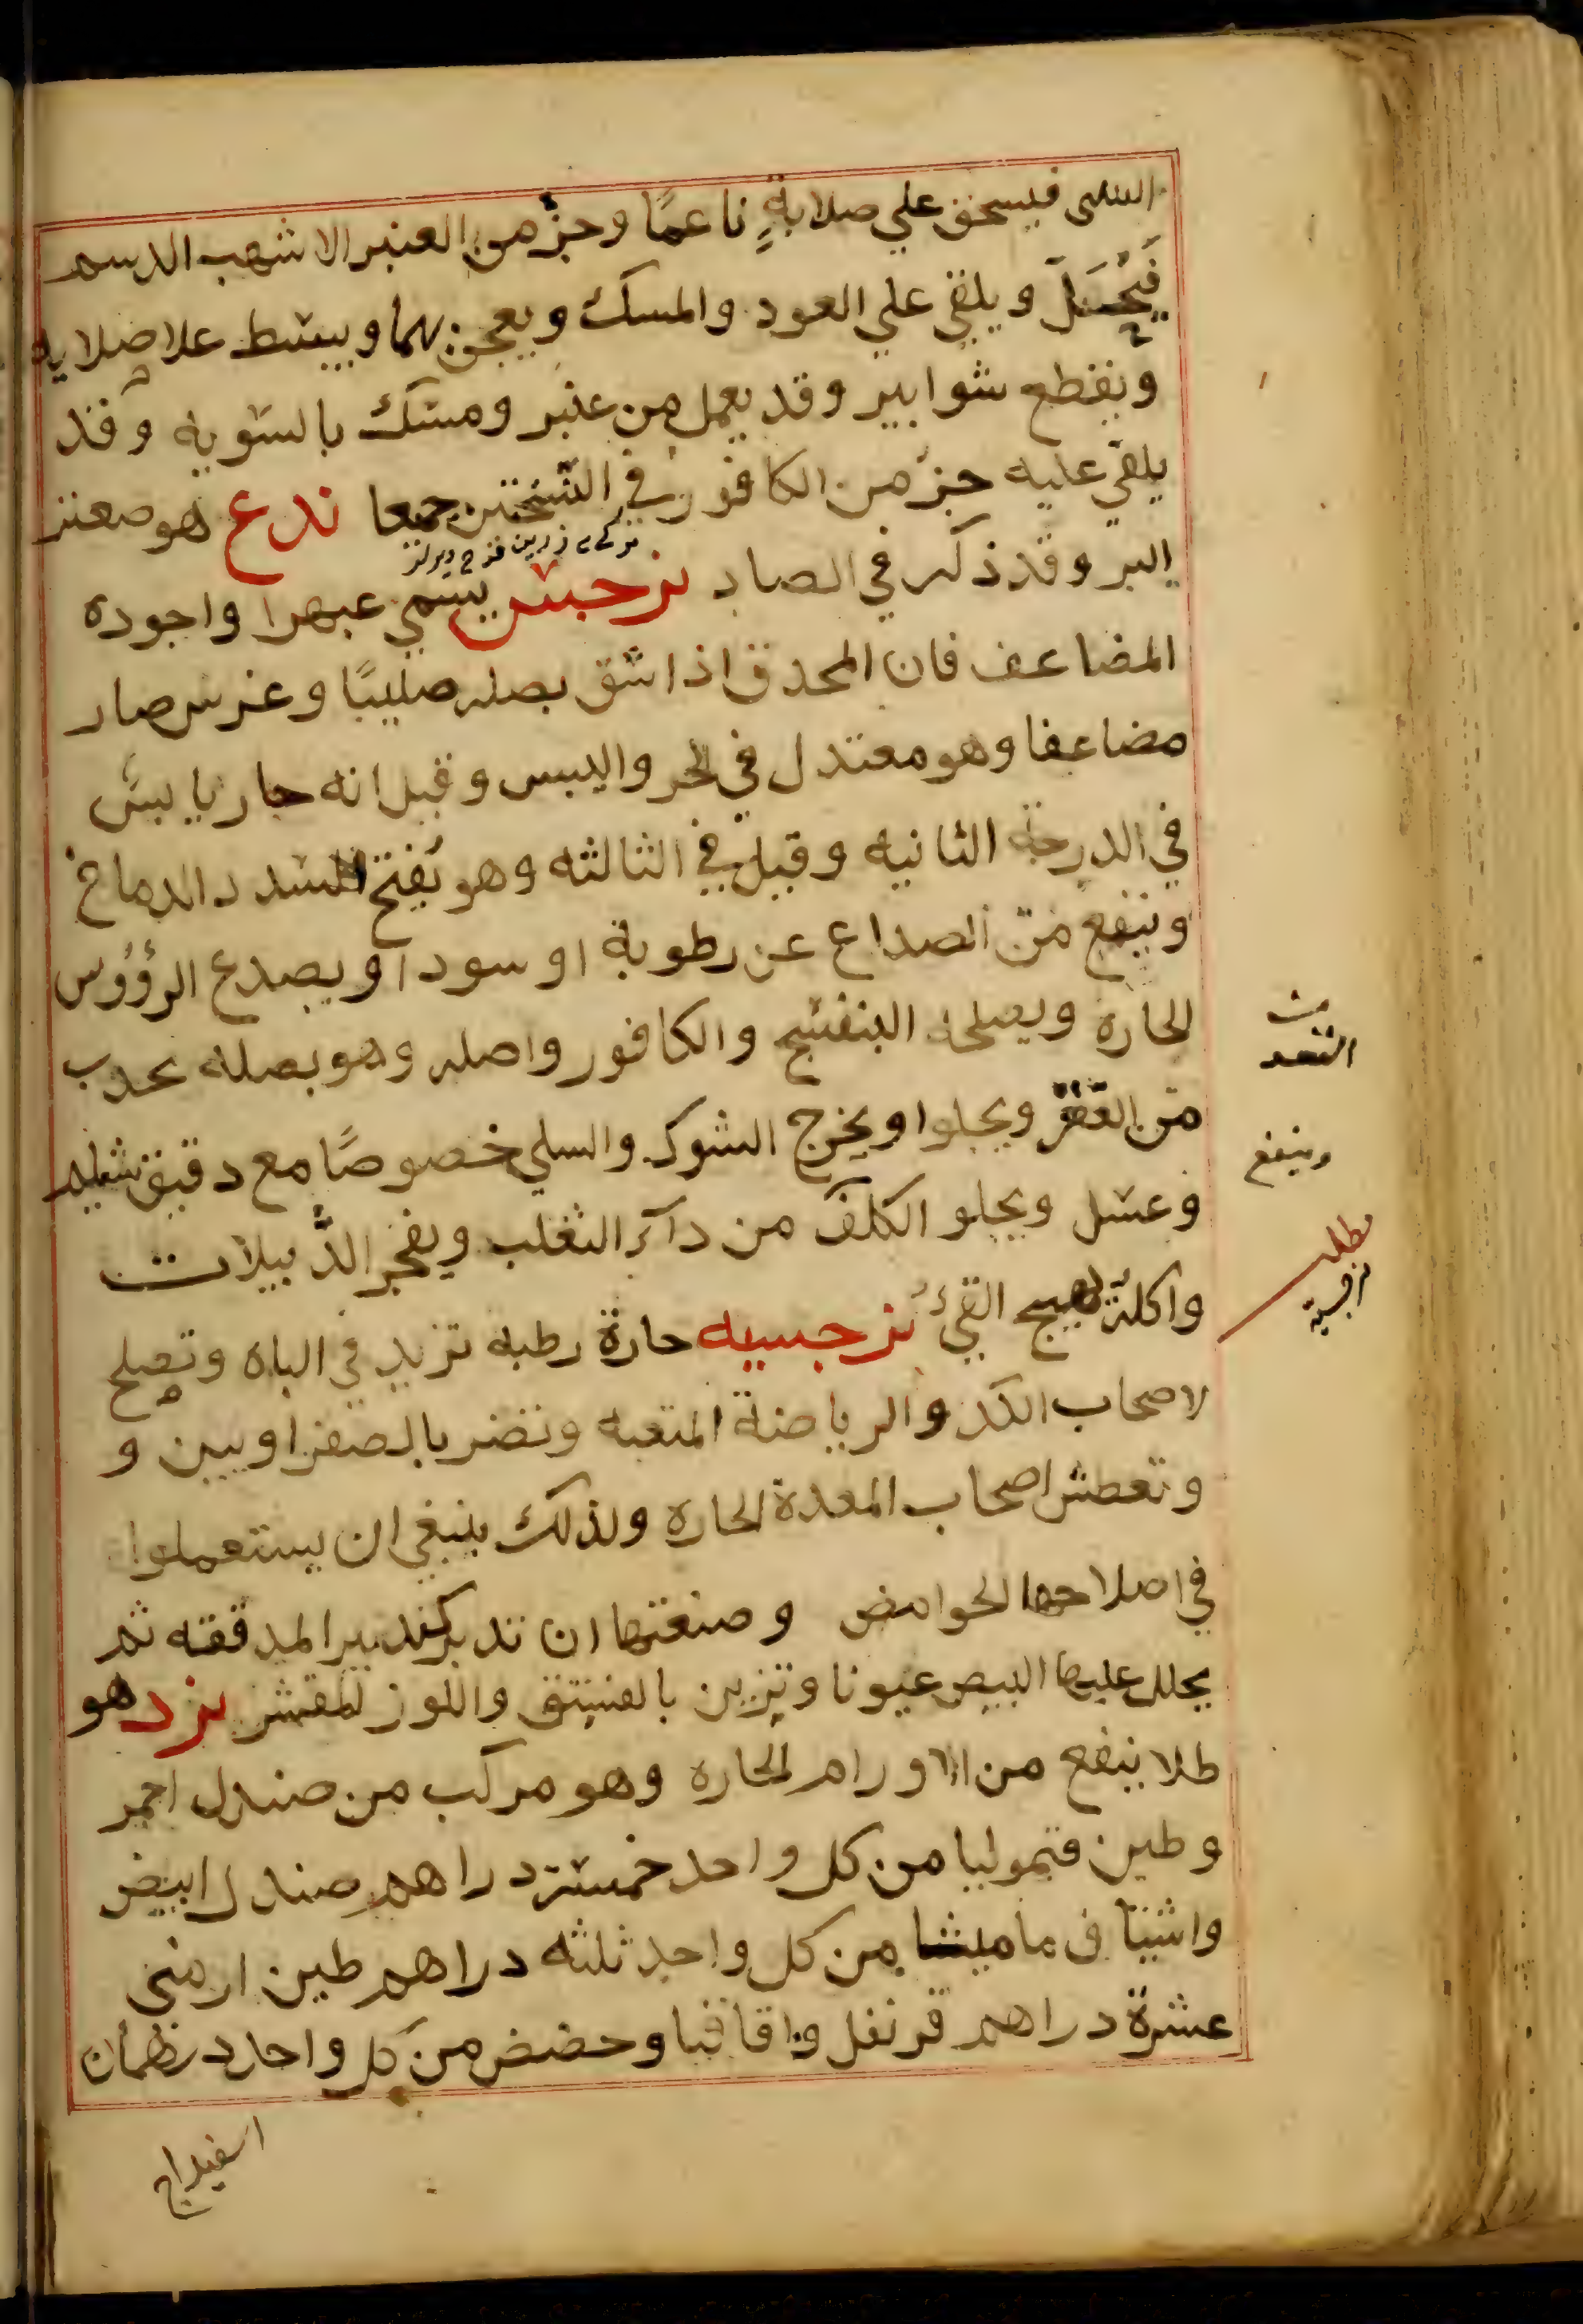 فيسحق علي صلابةٍ ناعمًا وجزؤ من العنبر الاشهب الدسم
فَيُحَل ويلقي علي العود والمسك ويعجن بهما ويبسط علا صلايه
ويقطع شوابير وقد يعمل من عنبر ومسك بالسويه وقد
يلقي عليه جزؤ من الكافور في النسختين جميعا ندع هو صعتر
البر وقد ذكر في الصاد نرجس يسمي عبهرا واجوده
المضاعف فان المحدق اذا شق بصله صليبًا وغرس صار
مضاعفا وهو معتدل في الحر واليبس وقيل انه حار يابس
في الدرجة الثانيه وقيل في الثالثه وهو يفتح السدد الدماغ
وينفع من الصداع عن رطوبة او سودا ويصدع الرؤوس
الحارة ويصلحه البنفسج والكافور واصله وهو بصله يجذب
من القعر ويجلوا ويخرج الشوك والسلي خصوصًا مع دقيق شيلم
وعسل ويجلو الكلف من دآء الثعلب ويفجر الدُّبيلات
واكله يهيج القئ نرجسيه حارة رطبه تزيد في الباه وتصلح
لاصحاب الكد والرياضة المتعبه وتضر بالصفراويين و
وتعطش اصحاب المعدة الحارة ولذلك ينبغي ان يستعملوا
في اصلاحها الحوامض وصنعتها ان تدبر كتدبير المدققه ثم
يجلل عليها البيض عيونا وتزين بالفستق واللوز المقشر نرد هو
طلا ينفع من الاورام الحاره وهو مركب من صندل احمر
وطين قيموليا من كل واحد خمسة دراهم صندل ابيض
واشياف ماميثا من كل واحد ثلثه دراهم طين ارمني
عشرة دراهم قرنفل واقاقيا وحضض من كل واحد درهمان
اسفيداج
من
القعد
وينفع
مطلب
نرجسية